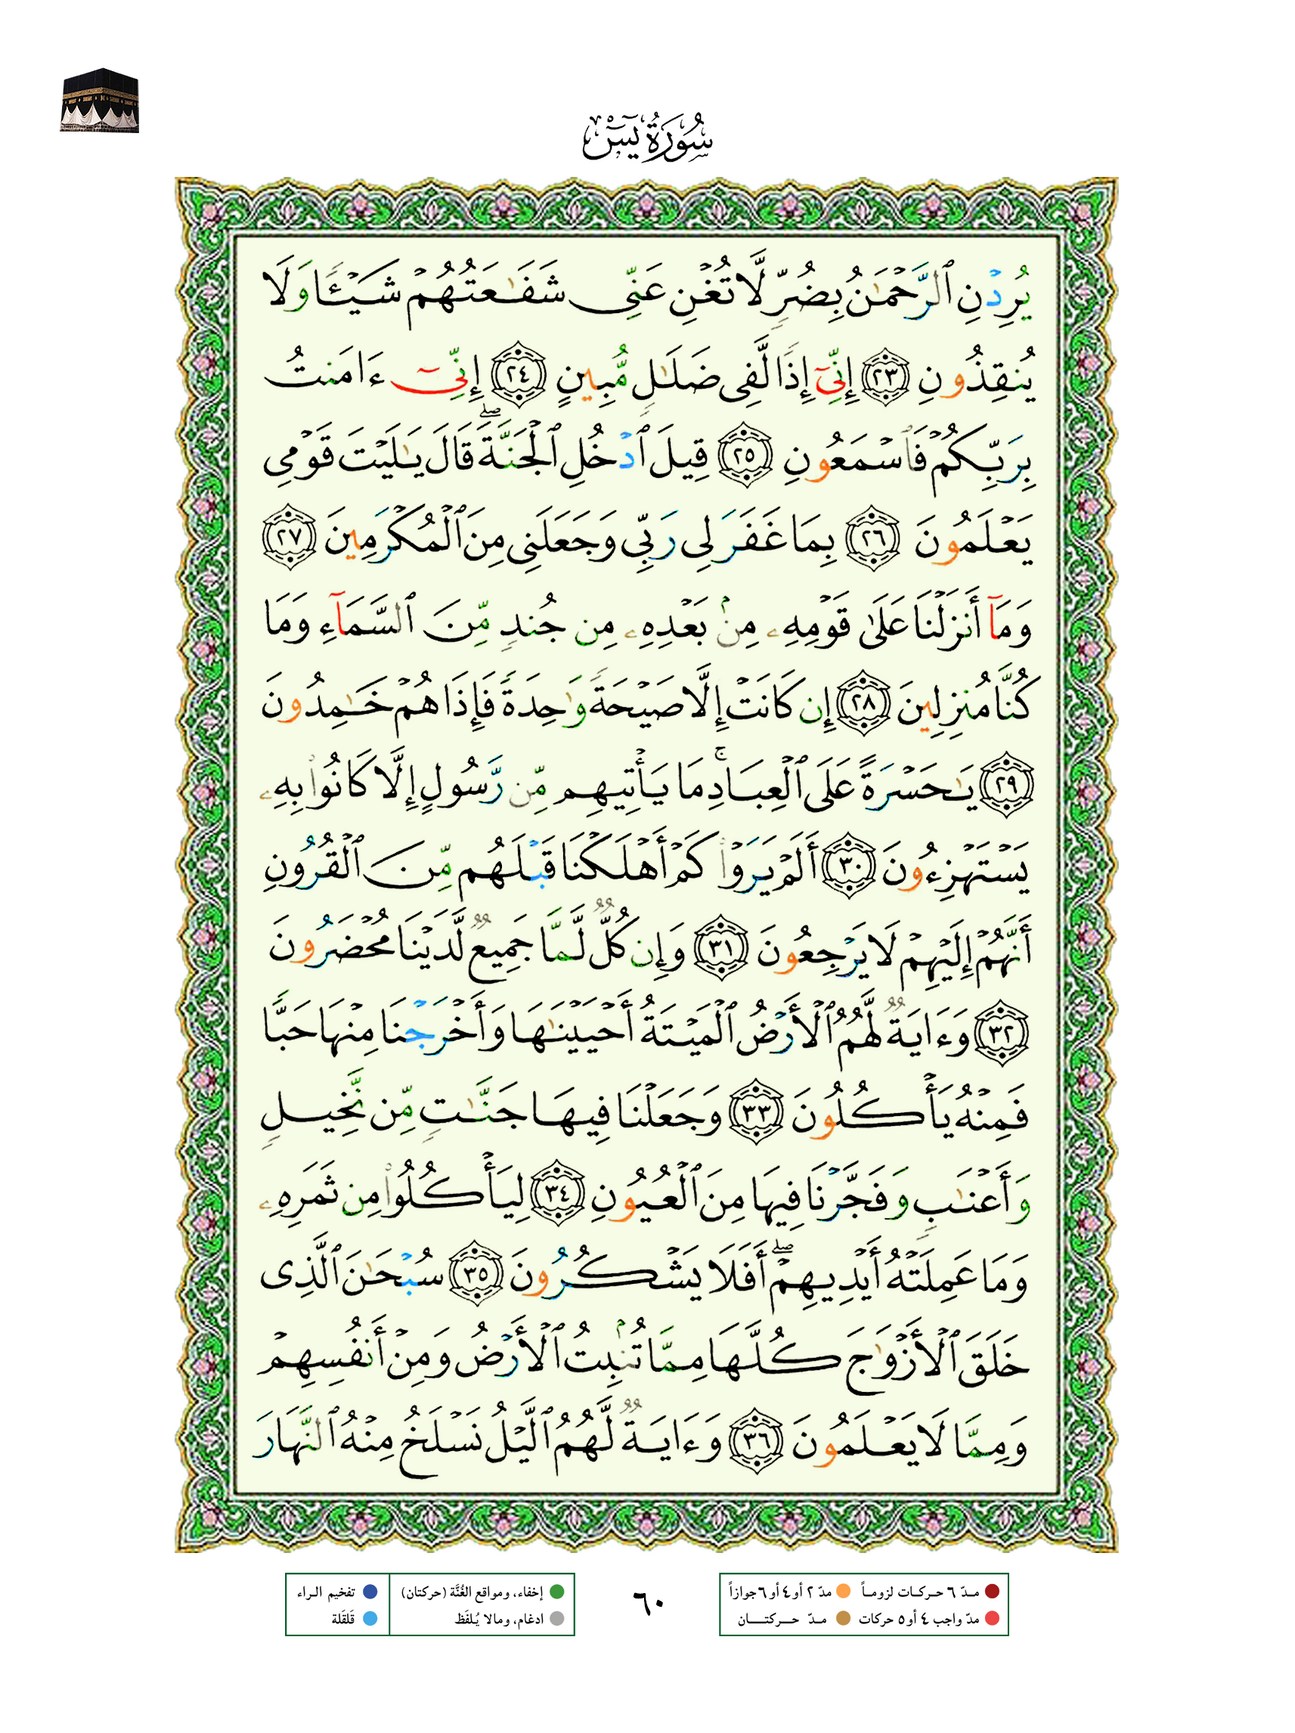 سُورَةُ يسٓ
يُرِدْنِ ٱلرَّحْمَٰنُ بِضُرٍّ لَّا تُغْنِ عَنِّى شَفَٰعَتُهُمْ شَيْـًٔا وَلَا
يُنقِذُونِ ٢٣ إِنِّىٓ إِذًا لَّفِى ضَلَٰلٍ مُّبِينٍ ٢٤ إِنِّىٓ ءَامَنتُ
بِرَبِّكُمْ فَٱسْمَعُونِ ٢٥ قِيلَ ٱدْخُلِ ٱلْجَنَّةَ ۖ قَالَ يَٰلَيْتَ قَوْمِى
يَعْلَمُونَ ٢٦ بِمَا غَفَرَ لِى رَبِّى وَجَعَلَنِى مِنَ ٱلْمُكْرَمِينَ ٢٧
وَمَآ أَنزَلْنَا عَلَىٰ قَوْمِهِۦ مِنۢ بَعْدِهِۦ مِن جُندٍ مِّنَ ٱلسَّمَآءِ وَمَا
كُنَّا مُنزِلِينَ ٢٨ إِن كَانَتْ إِلَّا صَيْحَةً وَٰحِدَةً فَإِذَا هُمْ خَٰمِدُونَ
٢٩ يَٰحَسْرَةً عَلَى ٱلْعِبَادِ ۚ مَا يَأْتِيهِم مِّن رَّسُولٍ إِلَّا كَانُوا۟ بِهِۦ
يَسْتَهْزِءُونَ ٣٠ أَلَمْ يَرَوْا۟ كَمْ أَهْلَكْنَا قَبْلَهُم مِّنَ ٱلْقُرُونِ
أَنَّهُمْ إِلَيْهِمْ لَا يَرْجِعُونَ ٣١ وَإِن كُلٌّ لَّمَّا جَمِيعٌ لَّدَيْنَا مُحْضَرُونَ
٣٢ وَءَايَةٌ لَّهُمُ ٱلْأَرْضُ ٱلْمَيْتَةُ أَحْيَيْنَٰهَا وَأَخْرَجْنَا مِنْهَا حَبًّا
فَمِنْهُ يَأْكُلُونَ ٣٣ وَجَعَلْنَا فِيهَا جَنَّٰتٍ مِّن نَّخِيلٍ
وَأَعْنَٰبٍ وَفَجَّرْنَا فِيهَا مِنَ ٱلْعُيُونِ ٣٤ لِيَأْكُلُوا۟ مِن ثَمَرِهِۦ
وَمَا عَمِلَتْهُ أَيْدِيهِمْ ۖ أَفَلَا يَشْكُرُونَ ٣٥ سُبْحَٰنَ ٱلَّذِى
خَلَقَ ٱلْأَزْوَٰجَ كُلَّهَا مِمَّا تُنۢبِتُ ٱلْأَرْضُ وَمِنْ أَنفُسِهِمْ
وَمِمَّا لَا يَعْلَمُونَ ٣٦ وَءَايَةٌ لَّهُمُ ٱلَّيْلُ نَسْلَخُ مِنْهُ ٱلنَّهَارَ
مـدّ ٦ حركات لزوماً مدّ ٢ أو ٤ أو ٦ جوازاً
مدّ واجب ٤ أو ٥ حركات مدّ حركتان
٦٠
إخفاء، ومواقع الغُنَّة (حركتان) تفخيم الراء
ادغام، ومالا يُلفَظ قلقلة